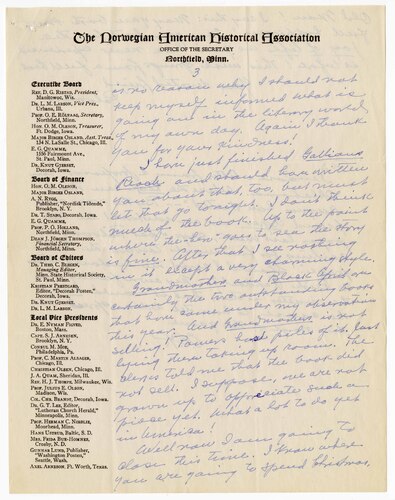 The Norwegian American Historical Association
OFFICE OF THE SECRETARY
Northfield, Minn.
3
Executive Board
REV. D. G. RISTAD, President,
Manitowoc, Wis.
DR. L. M. LARSON, Vice Pres.,
Urbana, Ill.
PROF. O. E. RÖLVAAG, Secretary,
Northfield, Minn.
HON. O. M. OLESON, Treasurer,
Ft. Dodge, Iowa.
MAJOR BIRGER OSLAND, Asst. Treas.
134 N. LaSalle St., Chicago, Ill.
E. G. QUAMME,
1936 Fairmount Ave.,
St. Paul, Minn.
DR. KNUT GJERSET,
Decorah, Iowa.
Board of Finance
HON. O. M. OLESON,
MAJOR BIRGER OSLAND,
A. N. RYGG,
Publisher, "Nordisk Tidende,"
Brooklyn, N. Y.
DR. T. STABO, Decorah, Iowa.
E. G. QUAMME,
PROF. P. O. HOLLAND,
Northfield, Minn.
DEAN J. JÖRGEN THOMPSON,
Financial Secretary,
Northfield, Minn.
Board of Editors
DR. THEO. C. BLEGEN,
Managing Editor,
Minn. State Historical Society,
St. Paul, Minn.
KRISTIAN PRESTGARD,
Editor, "Decorah Posten,"
Decorah, Iowa.
DR. KNUT GJERSET,
DR. L. M. LARSON.
Local Vice Presidents
DR. E. NYMAN FIGVED,
Boston, Mass.
CAPT. S. J. ARNESEN,
Brooklyn, N. Y.
CONSUL M. MOE,
Philadelphia, Pa.
PROF. C. MARTIN ALSAGER,
Chicago, Ill.
CHRISTIAN OLSEN, Chicago, Ill.
J. A. QUAM, Sheridan, Ill.
REV. H. J. THORPE, Milwaukee, Wis.
PROF. JULIUS E. OLSON,
Madison, Wis.
COL. CHR. BRANDT, Decorah, Iowa.
DR. G. T. LEE, Editor,
"Lutheran Church Herald,"
Minneapolis, Minn.
PROF. HERMAN C. NORDLIE,
Moorhead, Minn.
HANS USTRUD, Baltic, S. D.
MRS. FRIDA BUE-HOMNES,
Crosby, N. D.
GUNNAR LUND, Publisher,
"Washington Posten,"
Seattle, Wash.
AXEL ARNESON, Ft. Worth, Texas.
is no reason why I should not
keep myself informed what is
going on in the literary world
of my own day. Again I thank
you for your kindness!
I have just finished
and should have written
you about that, too, but must
let that go tonight. I don't think
much of the book. Up to the point
where the hero goes to sea the story
is fine. After that I see nothing
in it except a very charming style.
Grandmothers and Black April are
certainly the two outstanding books
that have come under my observation
this year. And Grandmothers is not
selling! Powers had piles of it just
lying there taking up room. The
clerks told me that the book did
not sell. I suppose, we are not
grown up to appreciate such a
piece yet. What a lot to do yet
in America!
Well now I am going to
close this time. I know where
you are going to spend Christmas,